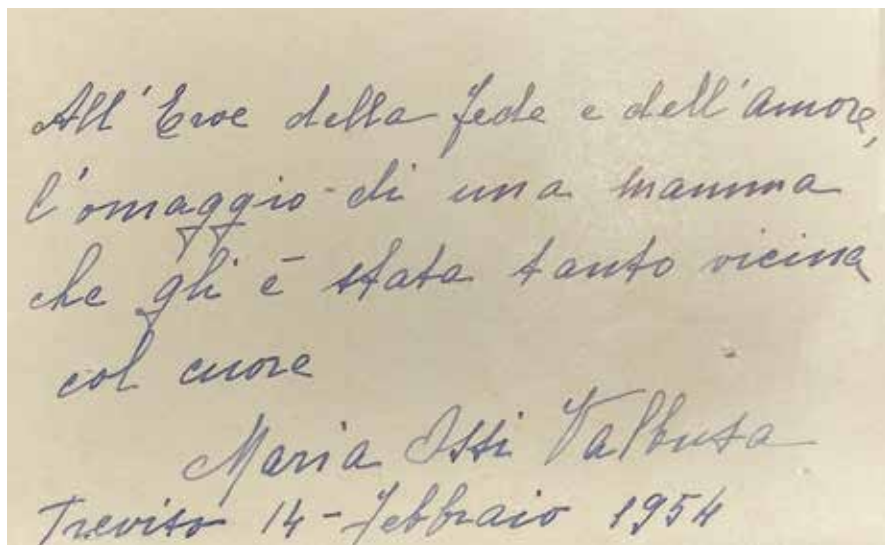 All'Eroe della fede e dell'amore,
l'omaggio di una mamma
che gli è stata tanto vicina
col cuore
Maria Ossi Valbusa
Treviso 14 - Febbraio 1954